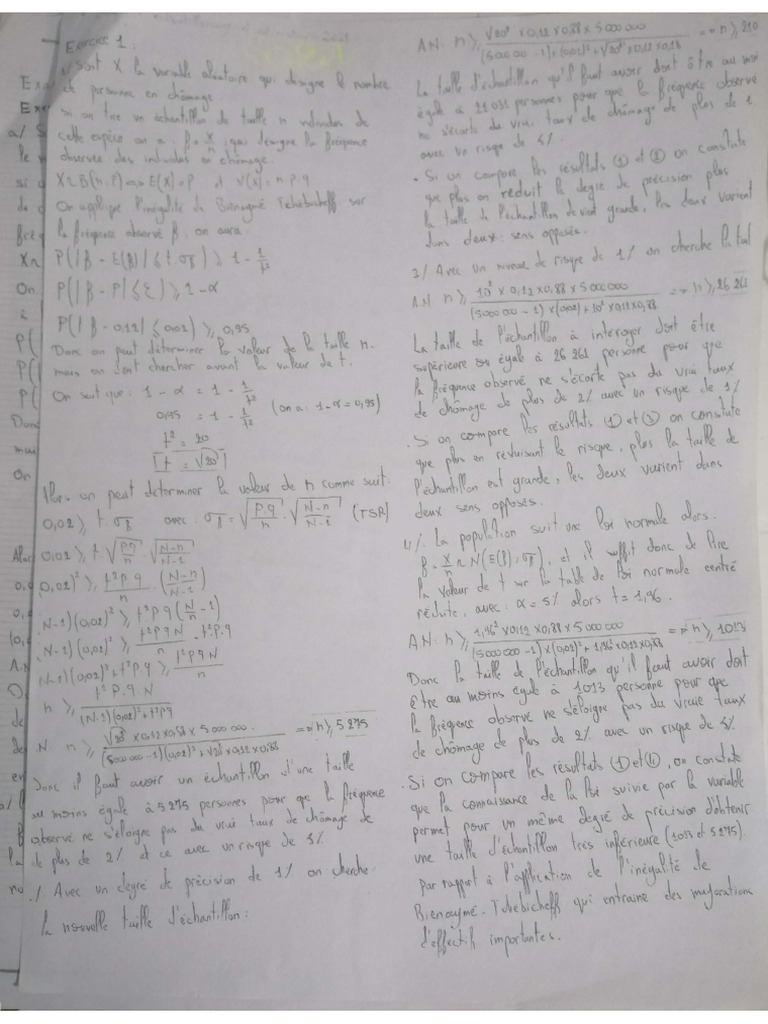 Exercice 1 :
1/ Soit X la variable aléatoire qui désigne le nombre
de personne en chômage
si on tire un échantillon de taille n individus de
cette espèce on a : f = X/n ; qui désigne la fréquence
observée des individus en chômage.
X ~ B(n, P) => E(X) = P et V(X) = n.p.q
On applique l'inégalité de Bienaymé Tchebicheff sur
la fréquence observé f, on aura :
P(|f - E(f)| ≤ t.σf) ≥ 1 - 1/t²
P(|f - P| ≤ ε) ≥ 1 - α
P(|f - 0,12| ≤ 0,02) ≥ 0,95
Donc on peut déterminer la valeur de la taille n.
mais on doit chercher avant la valeur de t.
On sait que : 1 - α = 1 - 1/t²
0,95 = 1 - 1/t² (on a : 1 - α = 0,95)
t² = 20
t = √20
Alors on peut determiner la valeur de n comme suit :
0,02 ≥ t.σf avec σf = √(p.q/n) . √(N-n/N-1) (TSR)
0,02 ≥ t √(p.q/n) . √(N-n/N-1)
(0,02)² ≥ t² p.q/n . (N-n/N-1)
(N-1)(0,02)² ≥ t² p.q (N/n - 1)
(N-1)(0,02)² ≥ t² p q N/n - t² p.q
(N-1)(0,02)² + t² p.q ≥ t² p q N/n
n ≥ t² p.q.N/((N-1)(0,02)² + t² p q)
N. n ≥ √20² x 0,12 x 0,88 x 5 000 000/((5 000 000 - 1)(0,02)² + √20² x 0,12 x 0,88) => n ≥ 5 275
Donc il faut avoir un échantillon d'une taille
au moins égale à 5 275 personnes pour que la fréquence
observé ne s'éloigne pas du vrai taux de chômage de
de plus de 2% et ce avec un risque de 5%
/ Avec un degré de précision de 1% on cherche
la nouvelle taille d'échantillon :
AN: n ≥ √20² x 0,12 x 0,88 x 5 000 000/((5 000 000 - 1)(0,01)² + √20² x 0,12 x 0,88) => n ≥ 210
La taille d'échantillon qu'il faut avoir doit être au moi
égale à 21 031 personnes pour que la fréquence observé
ne s'écarte du vrai taux de chômage de plus de 1
avec un risque de 5%
. Si on compare les résultats ① et ② on constate
que plus on réduit le degré de précision plus
la taille de l'échantillon devient grande, les deux varient
dans deux sens opposés.
3/ Avec un niveau de risque de 1% on cherche la tail
AN n ≥ 10² x 0,12 x 0,88 x 5 000 000/((5 000 000 - 1) x (0,02)² + 10² x 0,12 x 0,88) => n ≥ 26 261
La taille de l'échantillon à interroger doit être
supérieure ou égale à 26 261 personne pour que
la fréquence observé ne s'écarte pas du vrai taux
de chômage de plus de 2% avec un risque de 1%
. Si on compare les résultats ① et ③ on constate
que plus en réduisant le risque, plus la taille de
l'échantillon est grande, les deux varient dans
deux sens opposés.
4/. La population suit une loi normale alors
f = X/n ~ N(E(f), σf), et il suffit donc de lire
la valeur de t sur la table de loi normale centré
réduite, avec : α = 5% alors t = 1,96.
AN: n ≥ 1,96² x 0,12 x 0,88 x 5 000 000/((5 000 000 - 1) x (0,02)² + 1,96² x 0,12 x 0,88) => n ≥ 1013
Donc la taille de l'échantillon qu'il faut avoir doit
être au moins égale à 1013 personne pour que
la fréquence observé ne s'éloigne pas du vraie taux
de chômage de plus de 2% avec un risque de 5%
. Si on compare les résultats ① et ④, on constate
que la connaissance de la loi suivie par la variable
permet pour un même degré de précision d'obtenir
une taille d'échantillon très inférieure (1013 et 5275)
par rapport à l'application de l'inégalité de
Bienaymé. Tchebicheff qui entraine des majorations
d'effectif importantes.